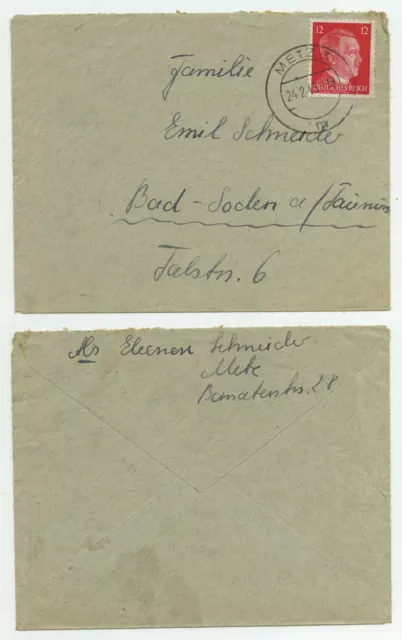 12 12
DEUTSCHES REICH
METZ
24.2.
Familie
Emil Schneider
Bad-Soden a/Taunus
Talstr. 6
Abs Eleonore Schneider
Metz
str. 28